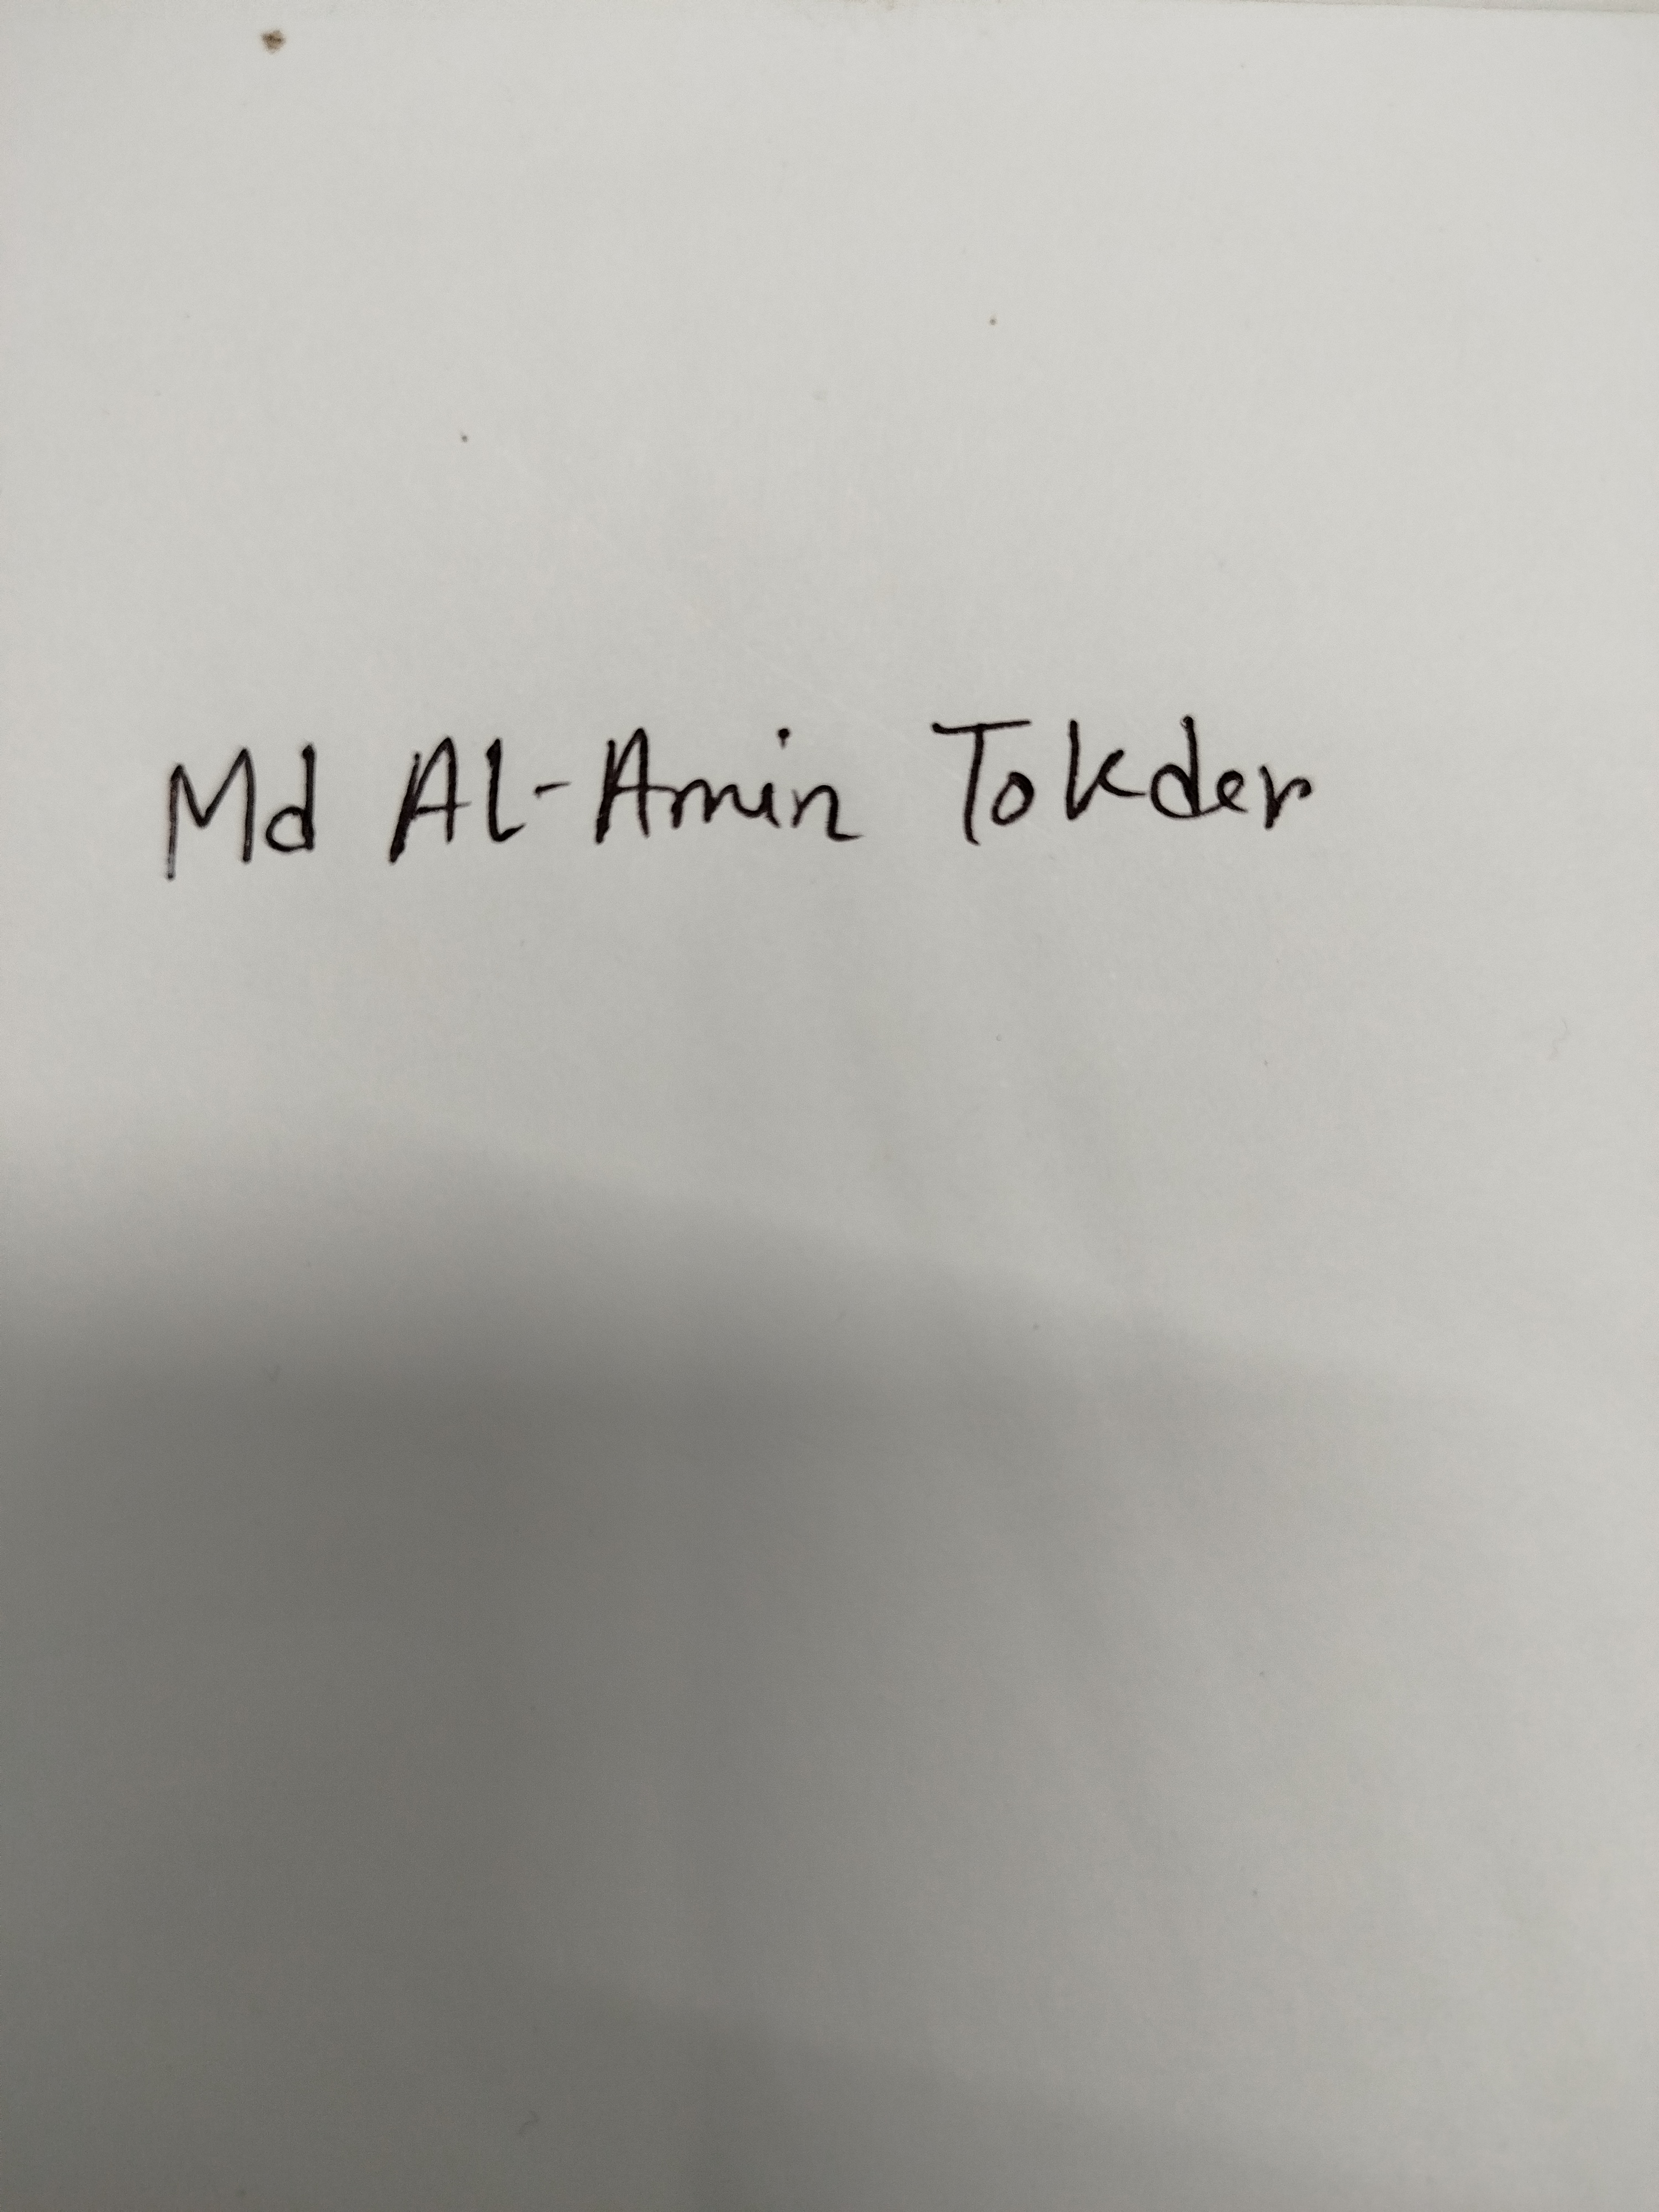 Md Al-Amin Tokder